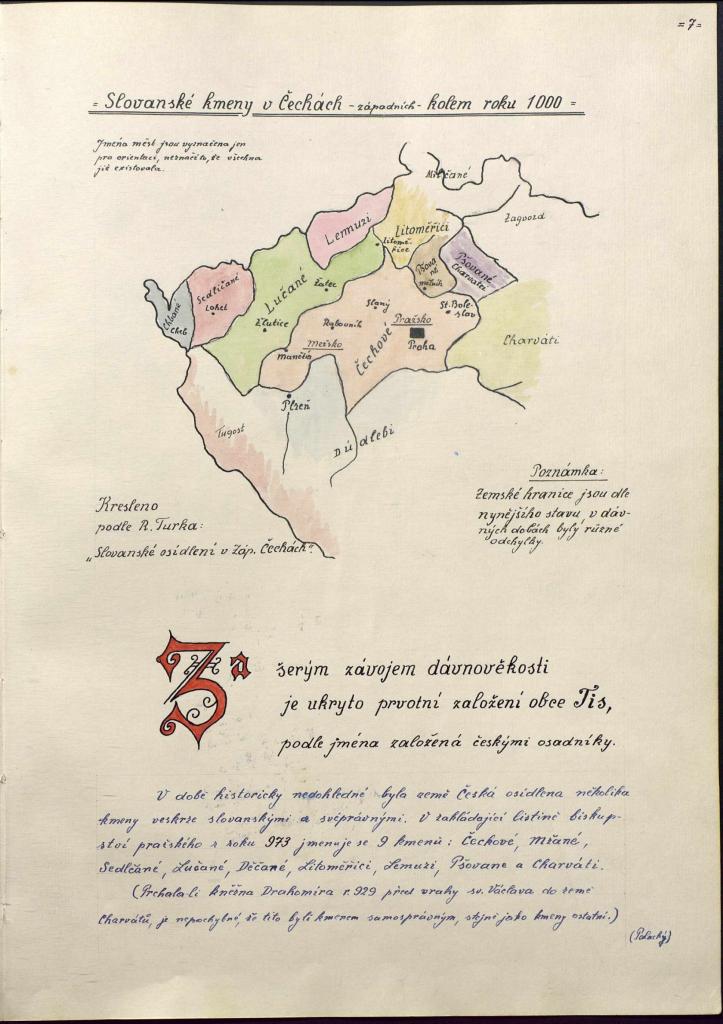 = 7 =
= Slovanské kmeny v Čechách - západních - kolem roku 1000 =
Jména měst jsou vyznačena jen
pro orientaci, neznačí to, že všechna
již existovala.
Milčané
Zagvozd
Lemuzi
Litoměřici
Litomě-
řice
Pšova
né
Mělník
Pšované
Charváti
Sedličané
Loket
Chbané
Cheb
Lučané
Žatec
Žlutice
Slaný
St. Bole-
slav
Rakovník
Pražsko
Praha
Čechové
Charváti
Mežsko
Manětín
Plzeň
Tugost
Dúdlebi
Poznámka:
Zemské hranice jsou dle
nynějšího stavu, v dáv-
ných dobách byly různé
odchylky.
Kresleno
podle R. Turka:
"Slovanské osídlení v Záp. Čechách".
Za šerým závojem dávnověkosti
je ukryto prvotní založení obce Tis,
podle jména založená českými osadníky.
V době historicky nedohledné byla země Česká osídlena několika
kmeny veskrze slovanskými a svéprávnými. V zakládající listině biskup-
ství pražského z roku 973 jmenuje se 9 kmenů: Čechové, Mžané,
Sedlčané, Lučané, Děčané, Litoměřici, Lemuzi, Pšovane a Charváti.
(Prchala-li kněžna Drahomíra r. 929 před vrahy sv. Václava do země
Charvátů, je nepochybné, že tito byli kmenem samosprávným, stejně jako kmeny ostatní.)
(Palacký)